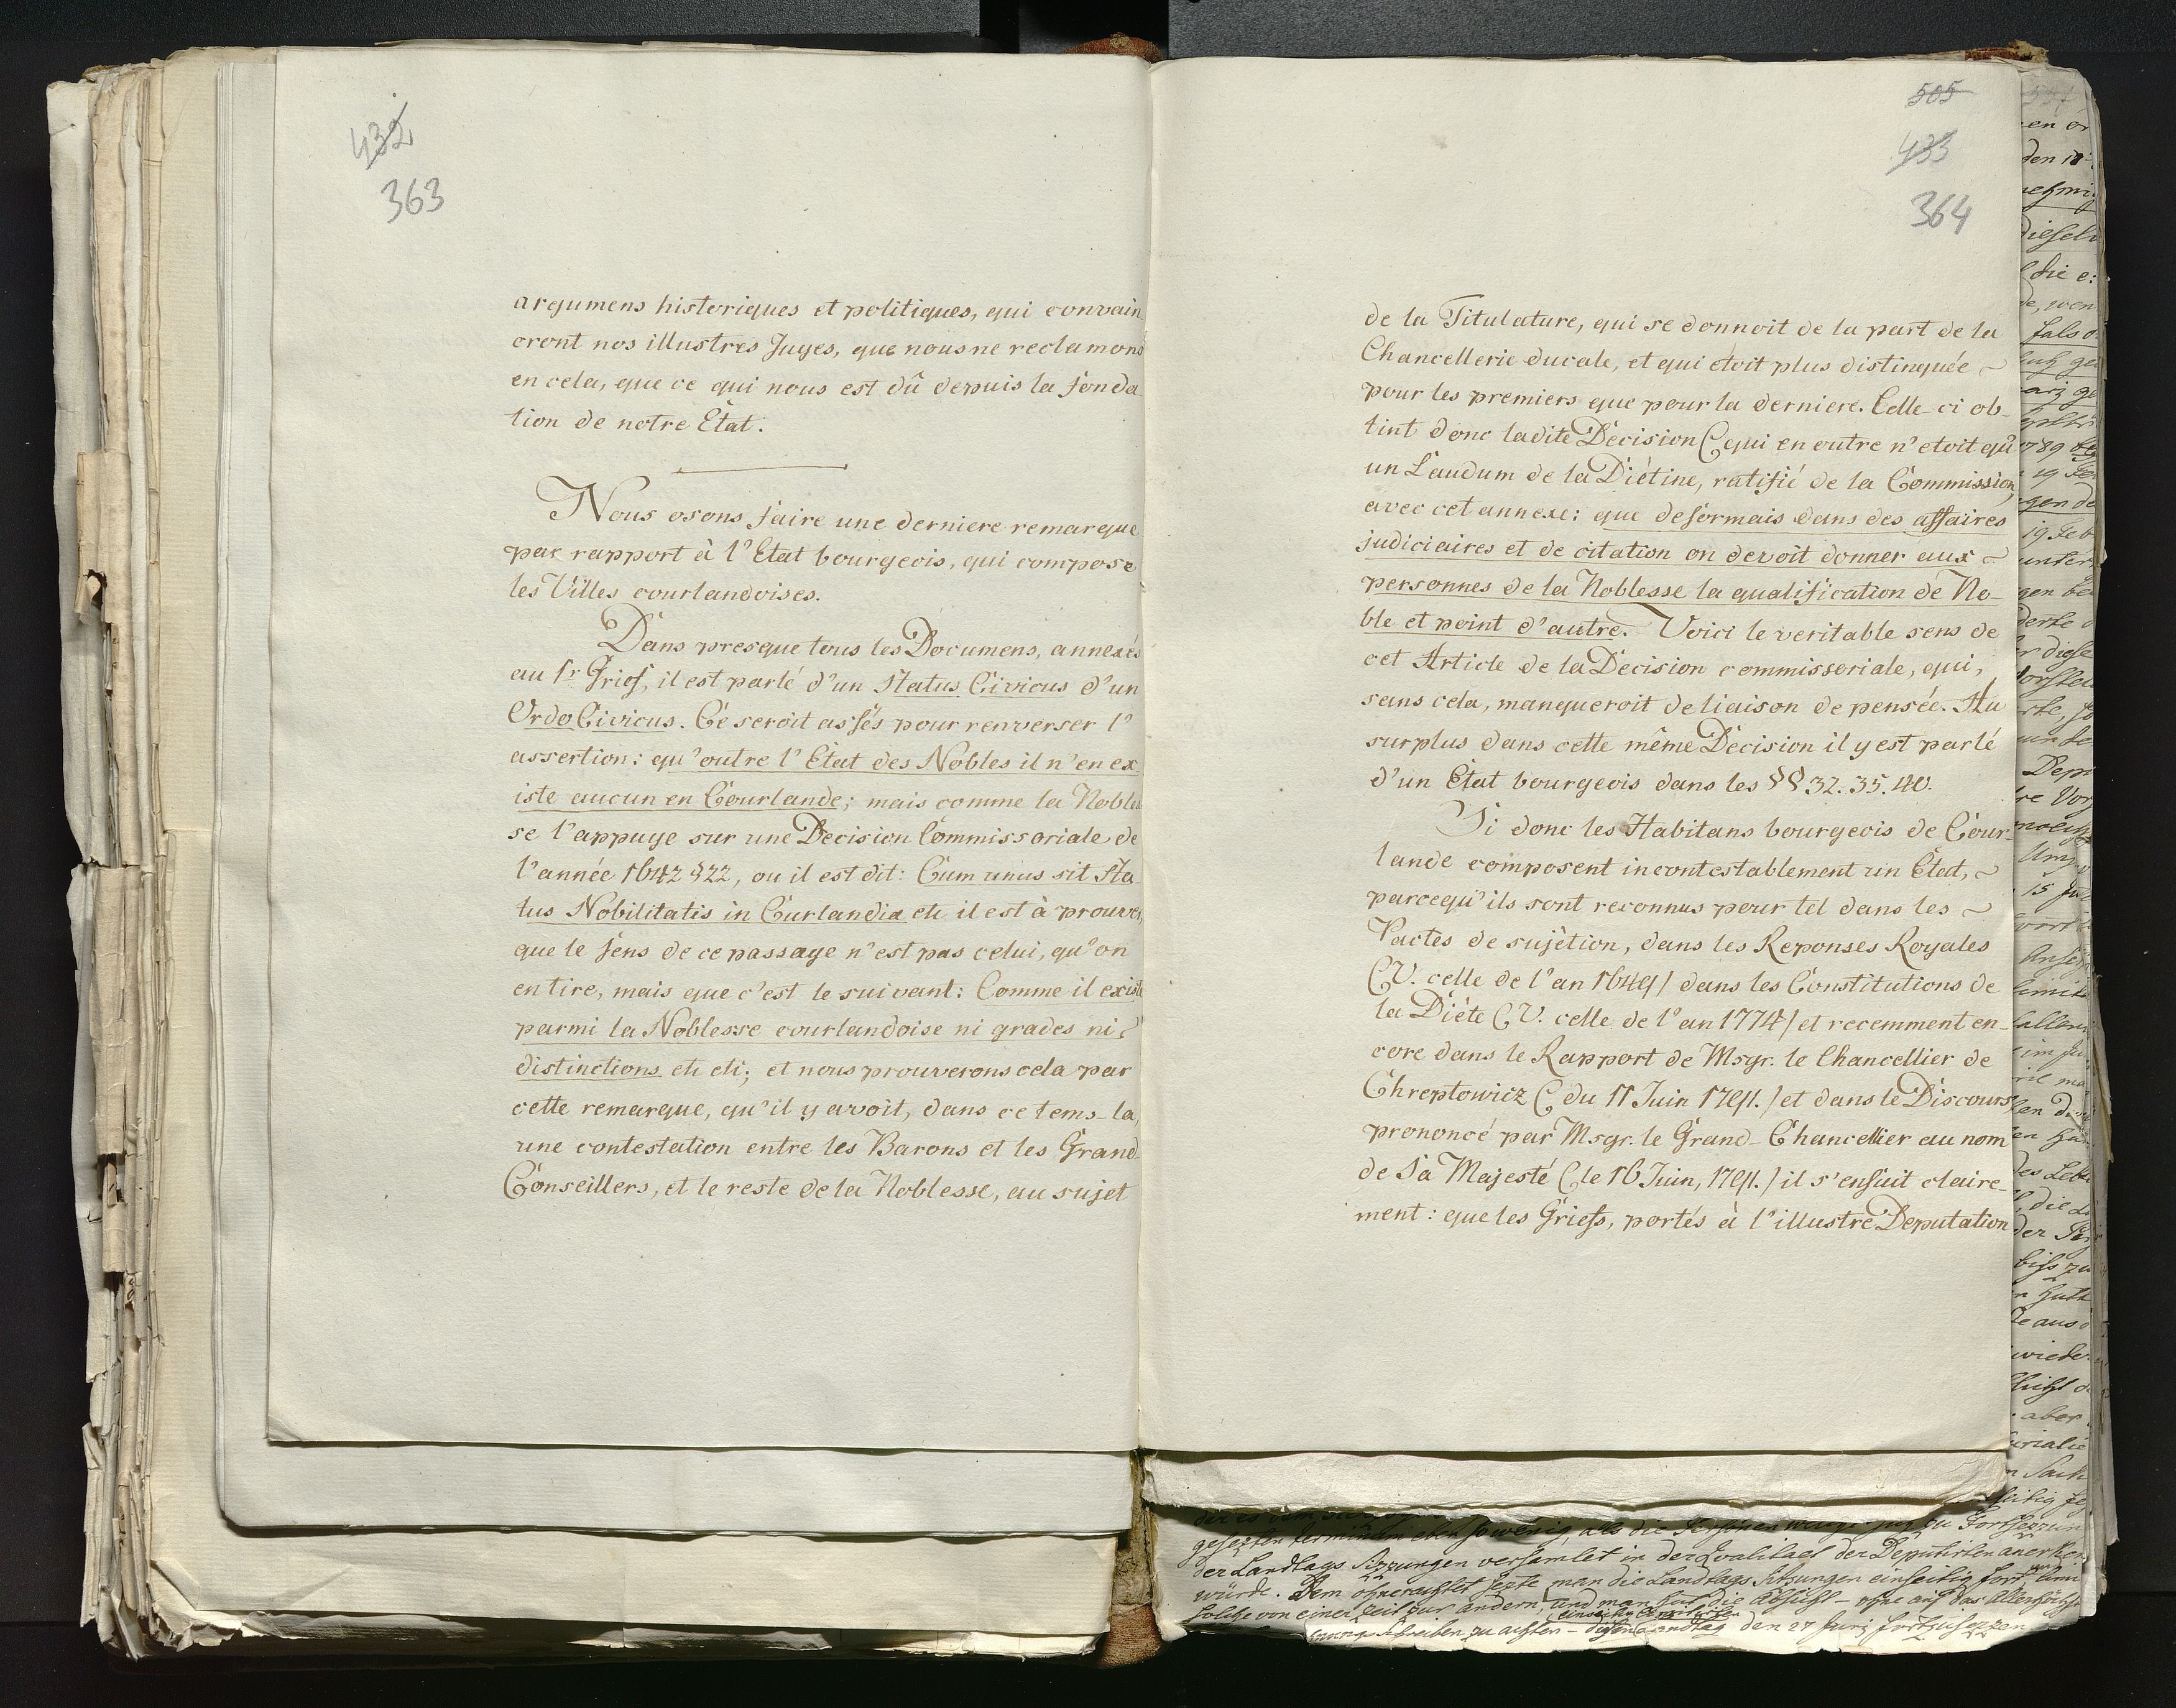 432
363
argumens historiques et politiques, qui convain
cront nos illustres Juges, que nous ne reclamons
en cela, que ce qui nous est dû depuis la fonda
tion de notre Etat.
Nous osons faire une derniere remarque
par rapport à l'Etat bourgeois, qui compose
les Villes courlandoises.
Dans presque tous les Documens, annexés
au 1r Grief, il est parlé d'un Status Civicus d'un
Ordo Civicus. Ce seroit assés pour renverser l'
assertion: qu'outre l'Etat des Nobles il n'en ex
iste aucun en Courlande; mais comme la Nobles
se l'appuye sur une Decision Commissoriale de
l'année 1642 §22, ou il est dit: Cum unus sit Sta
tus Nobilitatis in Curlandia etc il est à prouver,
que le sens de ce passage n'est pas celui, qu'on
en tire, mais que c'est le suivant: Comme il existe
parmi la Noblesse courlandoise ni grades ni
distinctions etc etc; et nous prouverons cela par
cette remarque, qu'il y avoit, dans ce tems-la,
une contestation entre les Barons et les Grand
Conseillers, et le reste de la Noblesse, au sujet
505
433
364
de la Titulature, qui se donnoit de la part de la
Chancellerie ducale, et qui étoit plus distinquée
pour les premiers que pour la derniere. Celle ci ob-
tint donc ladite Decision (qui en outre n'etoit qu'
un Laudum de la Diétine, ratifié de la Commission,
avec cet annexe: que desormais dans des affaires
judiciaires et de citation on devoit donner aux
personnes de la Noblesse la qualification de No-
ble et point d'autre. Voici le veritable sens de
cet Article de la Decision commissoriale, qui,
sans cela, manqueroit de liaison de pensée. Au
surplus dans cette même Decision il y est parlé
d'un Etat bourgeois dans les §§ 32. 35. 40.
Si donc les Habitans bourgeois de Cour-
lande composent incontestablement un Etat,
parcequ'ils sont reconnus pour tel dans les
Pactes de sujétion, dans les Reponses Royales
(V. celle de l'an 1649) dans les Constitutions de
la Diéte (V. celle de l'an 1774) et recemment en-
core dans le Rapport de Msgr. le Chancellier de
Chreptowicz (du 11 Juin 1791.) et dans le Discours
prononcé par Msgr. le Grand-Chancellier au nom
de Sa Majesté (le 16 Juin, 1791.) il s'ensuit claire-
ment: que les Griefs, portés à l'illustre Deputation
der Landtags Sizzungen versamlet in der Qvalitaet der Deputirten anerken
würde. Dem ohnerachtet sezte man die Landtags Sitzungen einseitig fort